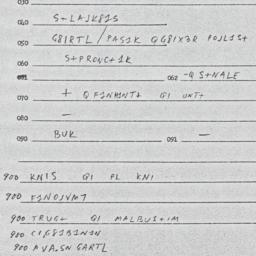 030
040 S+LAJK81S
050 G81RTL / PAS1K QG81X3R POJL1S+
060 S+PRONC+1K
091 062 -Q S+NALE
070 + Q F1NHINT+ G1 UNT+
080 —
090 BUK 091 —
900 KN1S G1 FL KN1
900 F1NOJVM7
900 TRUG+ Q1 MALBUS+1M
900 C1G81B1N1N
900 AVA.SN GARTL